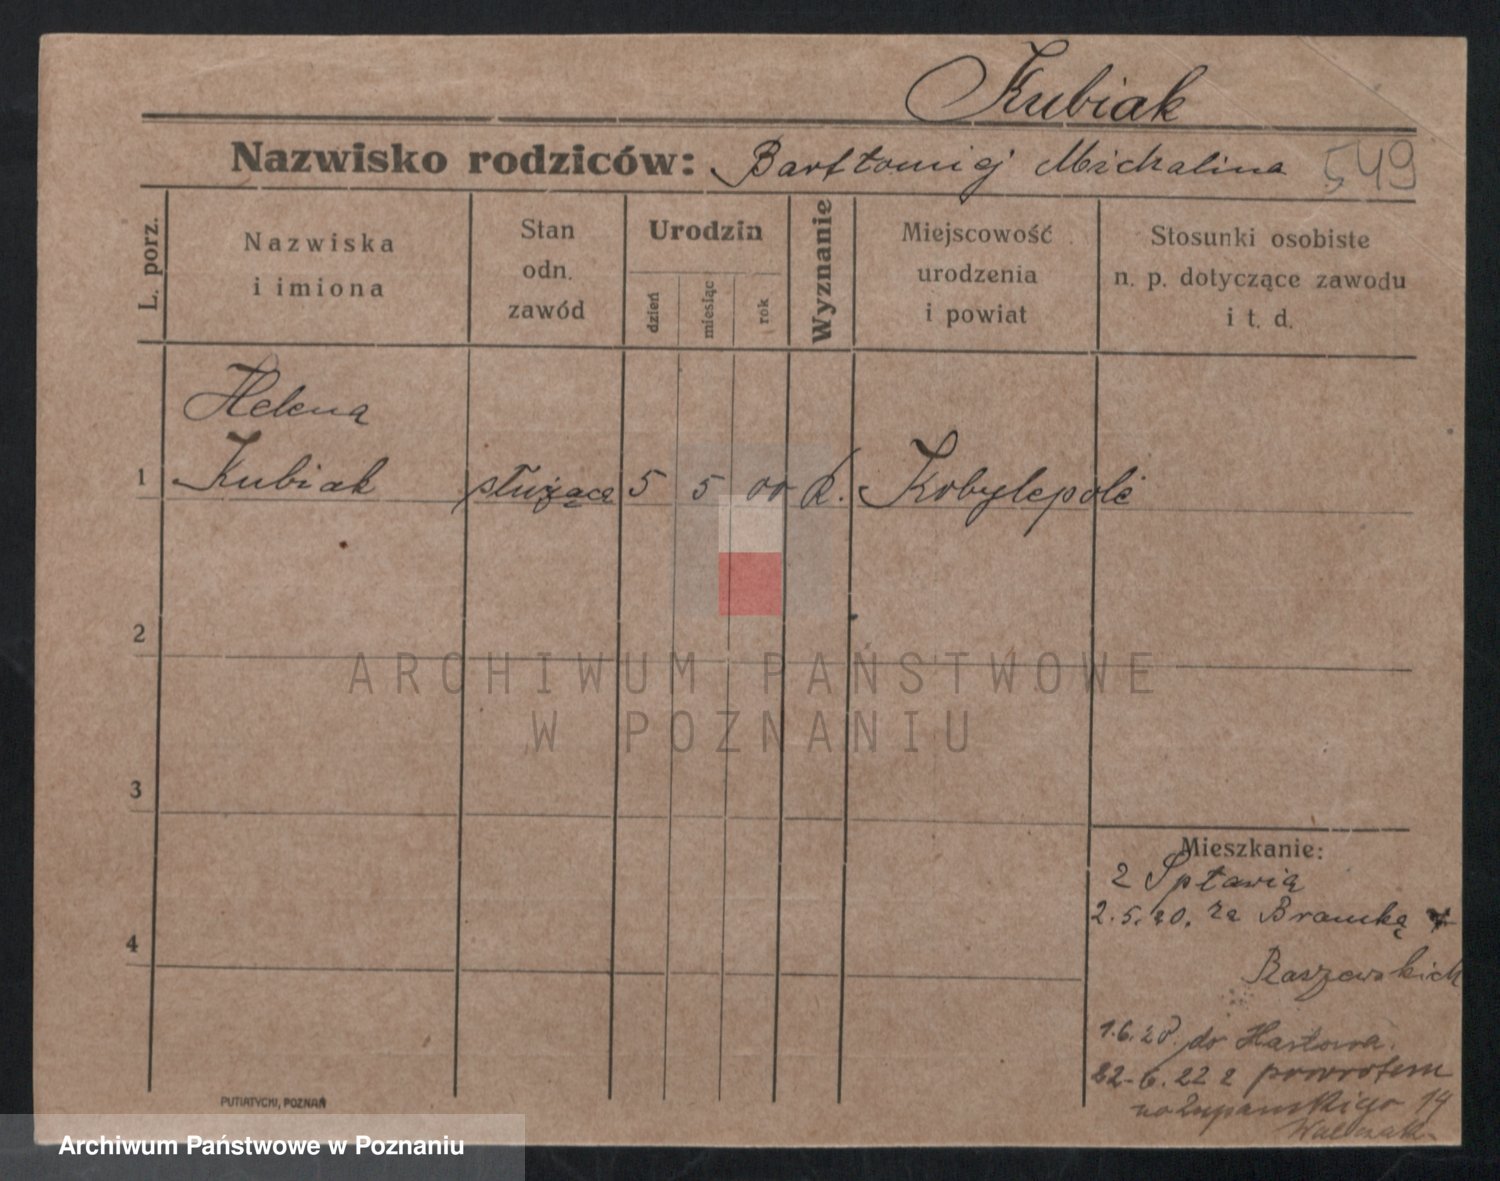 Kubiak
Nazwisko rodziców: Bartłomiej Michalina 549
L. porz.
Nazwiska
i imiona
Stan
odn.
zawód
Urodzin
dzień
miesiąc
rok
Wyznanie
Miejscowość
urodzenia
i powiat
Stosunki osobiste
n. p. dotyczące zawodu
i t. d.
Helena
1 Kubiak służąca 5 5 00 k. Kobylepole
2
ARCHIWUM PAŃSTWOWE
W POZNANIU
3
Mieszkanie:
z Spławia
2.5.20. za Bramką
4
Raszewskich
1.6.20. do Hastowa.
22-6.22 z powrotem
na Żupańskiego 14
Walczak
PUTIATYCKI, POZNAŃ
Archiwum Państwowe w Poznaniu